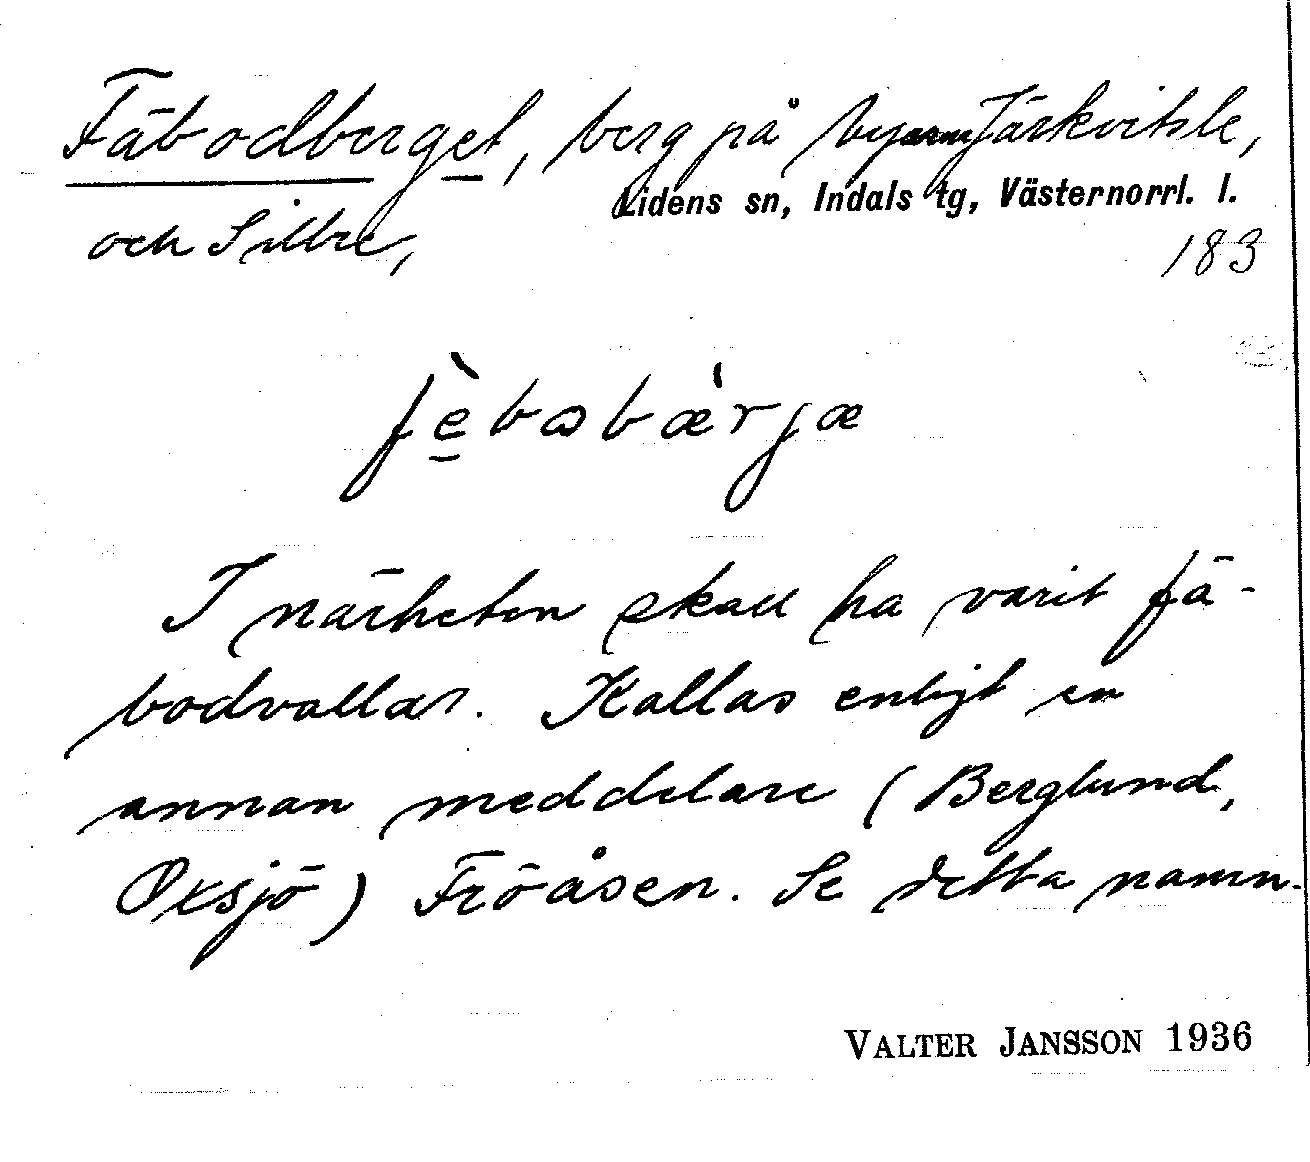 Fäbodberget, berg på byarna Järkvitsle,
Lidens sn, Indals tg, Västernorrl. l.
och Sillre,
183
fè̱bωbæ̀rjæ
I närheten skall ha varit fä-
bodvallar. Kallas enligt en
annan meddelare (Berglund,
Oxsjö) Fröåsen. Se detta namn.
VALTER JANSSON 1936